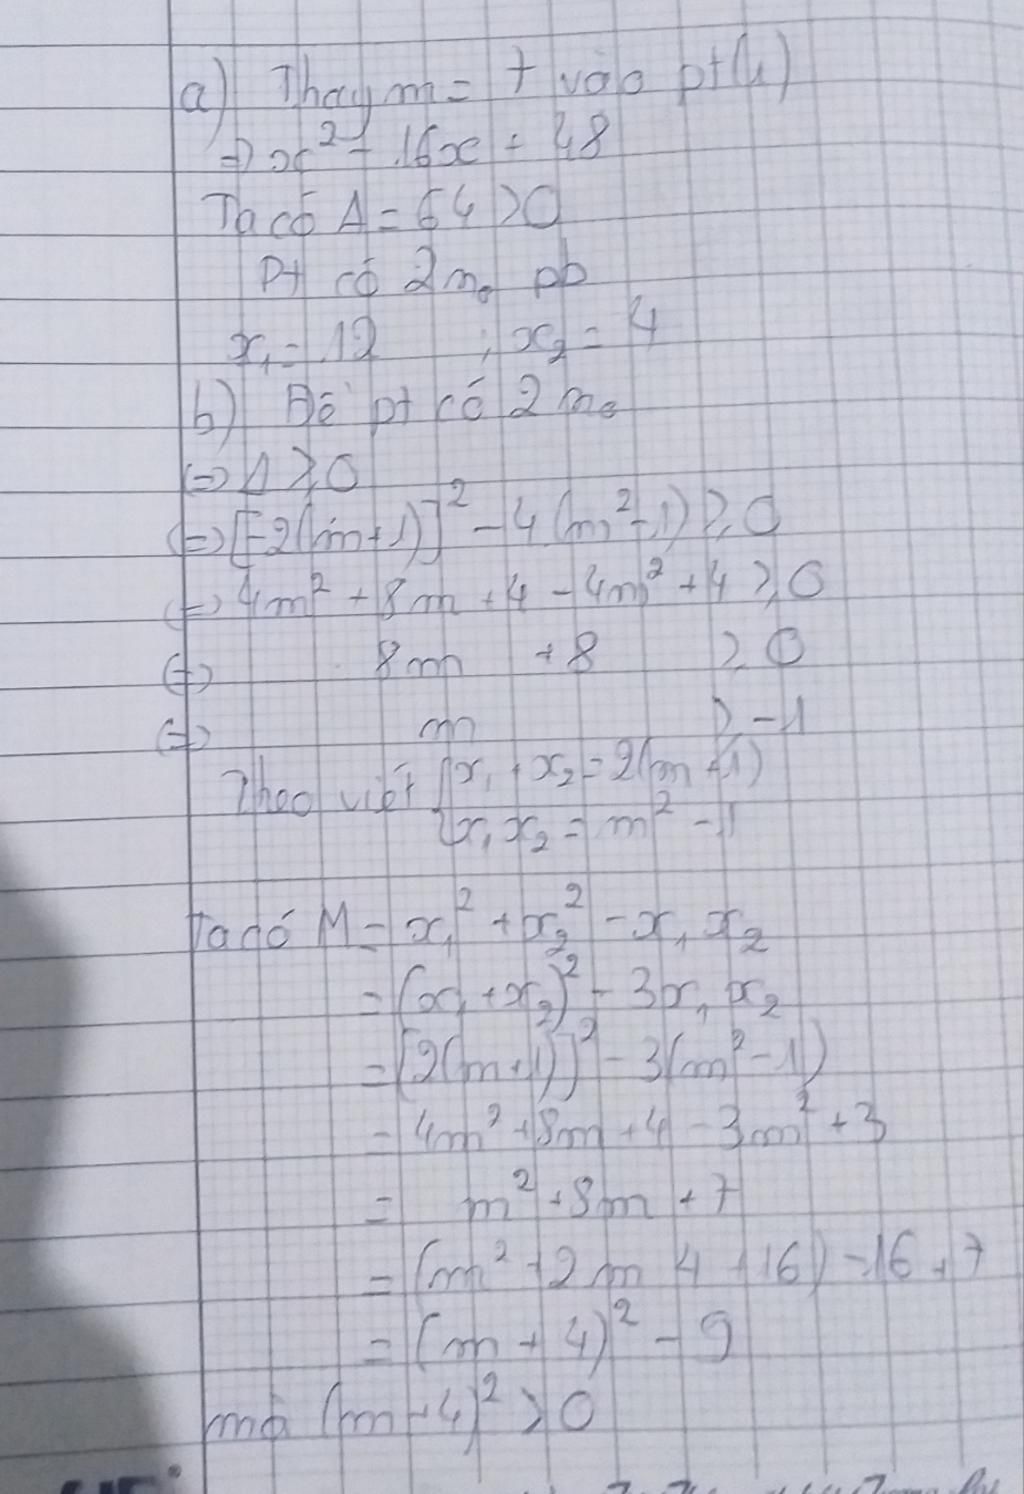 a) Thay m = 7 vào pt(1)
=> x² - 16x + 48
Ta có Δ = 64 > 0
Pt có 2 n₀ pb
x₁ = 12 ; x₂ = 4
b) Để pt có 2 n₀
<=> Δ ≥ 0
<=> [-2(m+1)]² - 4(m²-1) ≥ 0
<=> 4m² + 8m + 4 - 4m² + 4 ≥ 0
<=> 8m + 8 ≥ 0
<=> m ≥ -1
Theo viét { x₁ + x₂ = 2(m+1)
x₁x₂ = m² - 1
Ta có M = x₁² + x₂² - x₁x₂
= (x₁ + x₂)² - 3x₁x₂
= [2(m+1)]² - 3(m² - 1)
= 4m² + 8m + 4 - 3m² + 3
= m² + 8m + 7
= (m² + 2m4 + 16) - 16 + 7
= (m + 4)² - 9
mà (m+4)² ≥ 0